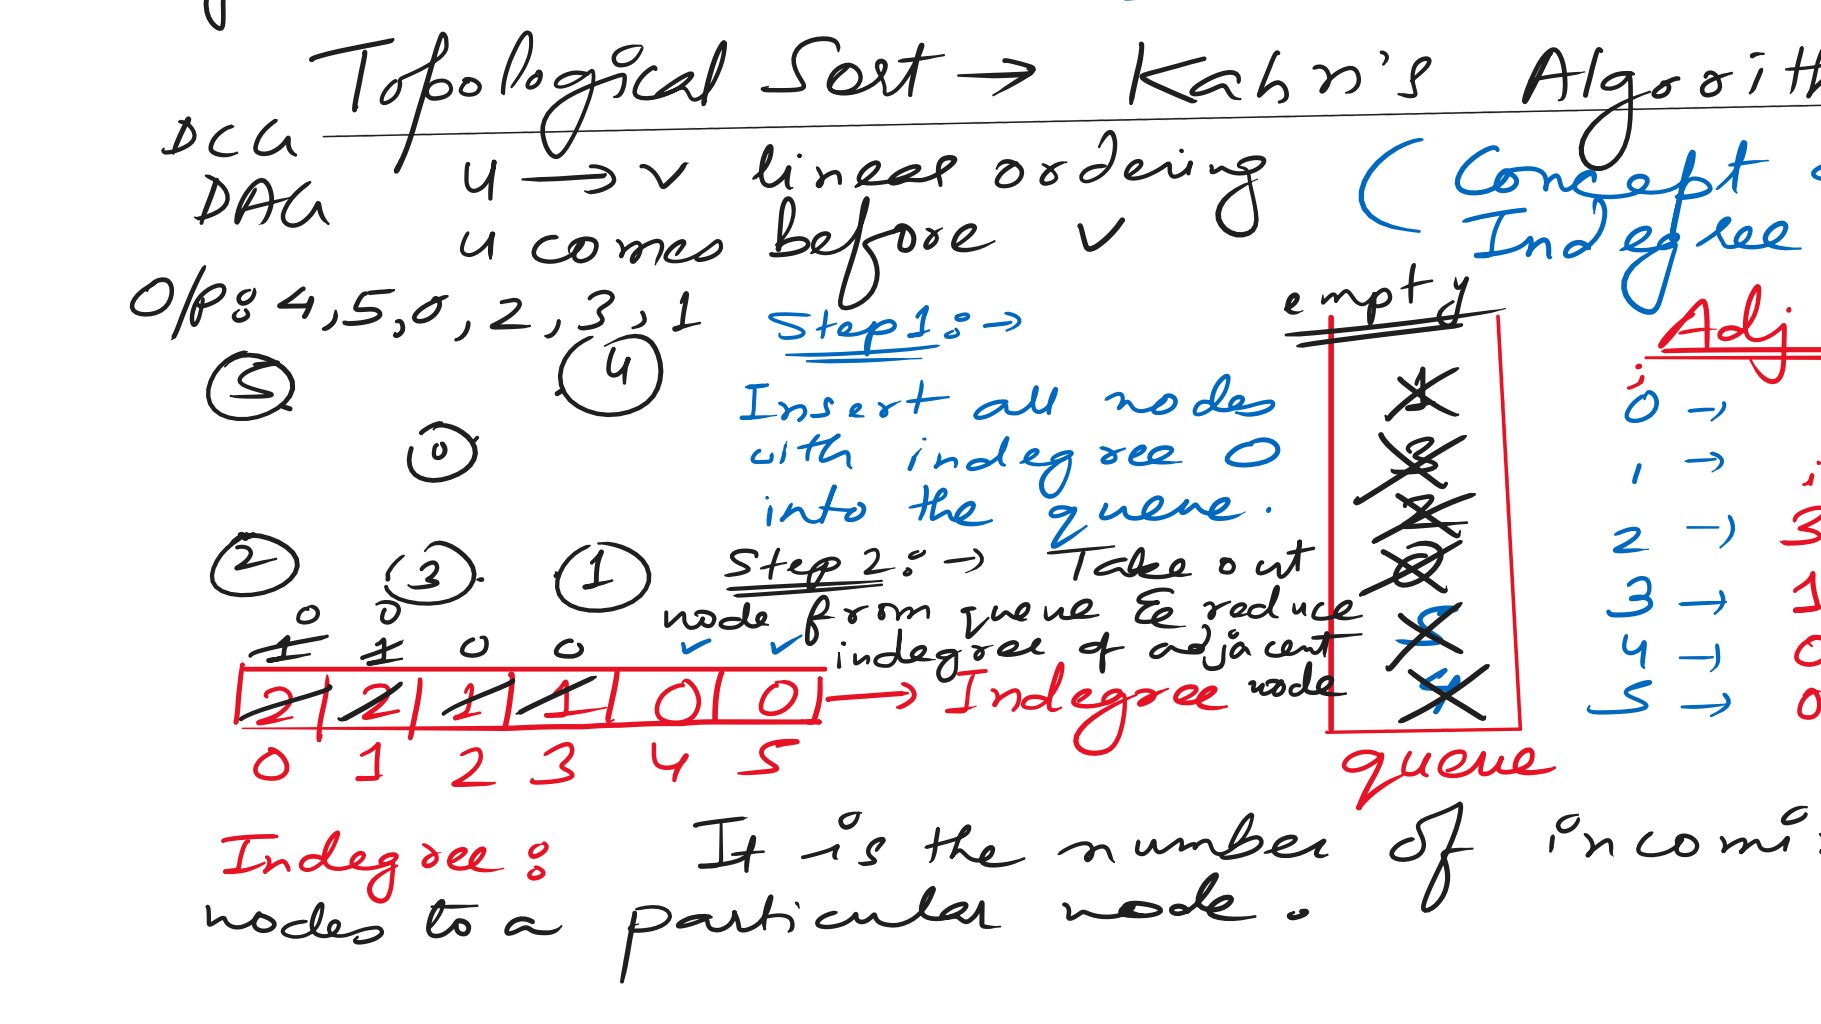 Topological Sort → Kahn's Algorith
DCG
DAG
u → v linear ordering
u comes before v
(Concept
Indegree
O/p: 4, 5, 0, 2, 3, 1
Step 1: →
Insert all nodes
with indegree 0
into the queue.
Step 2: → Take out
node from queue & reduce
indegree of adjacent
node
5
4
0
2
3
1
0 0
1 1 0 0 ✓ ✓
2 2 1 1 0 0 → Indegree
0 1 2 3 4 5
empty
1
3
2
0
5
4
queue
Adj
0 →
1 →
2 → 3
3 → 1
4 → 0
5 → 0
Indegree: It is the number of incomi
nodes to a particular node.